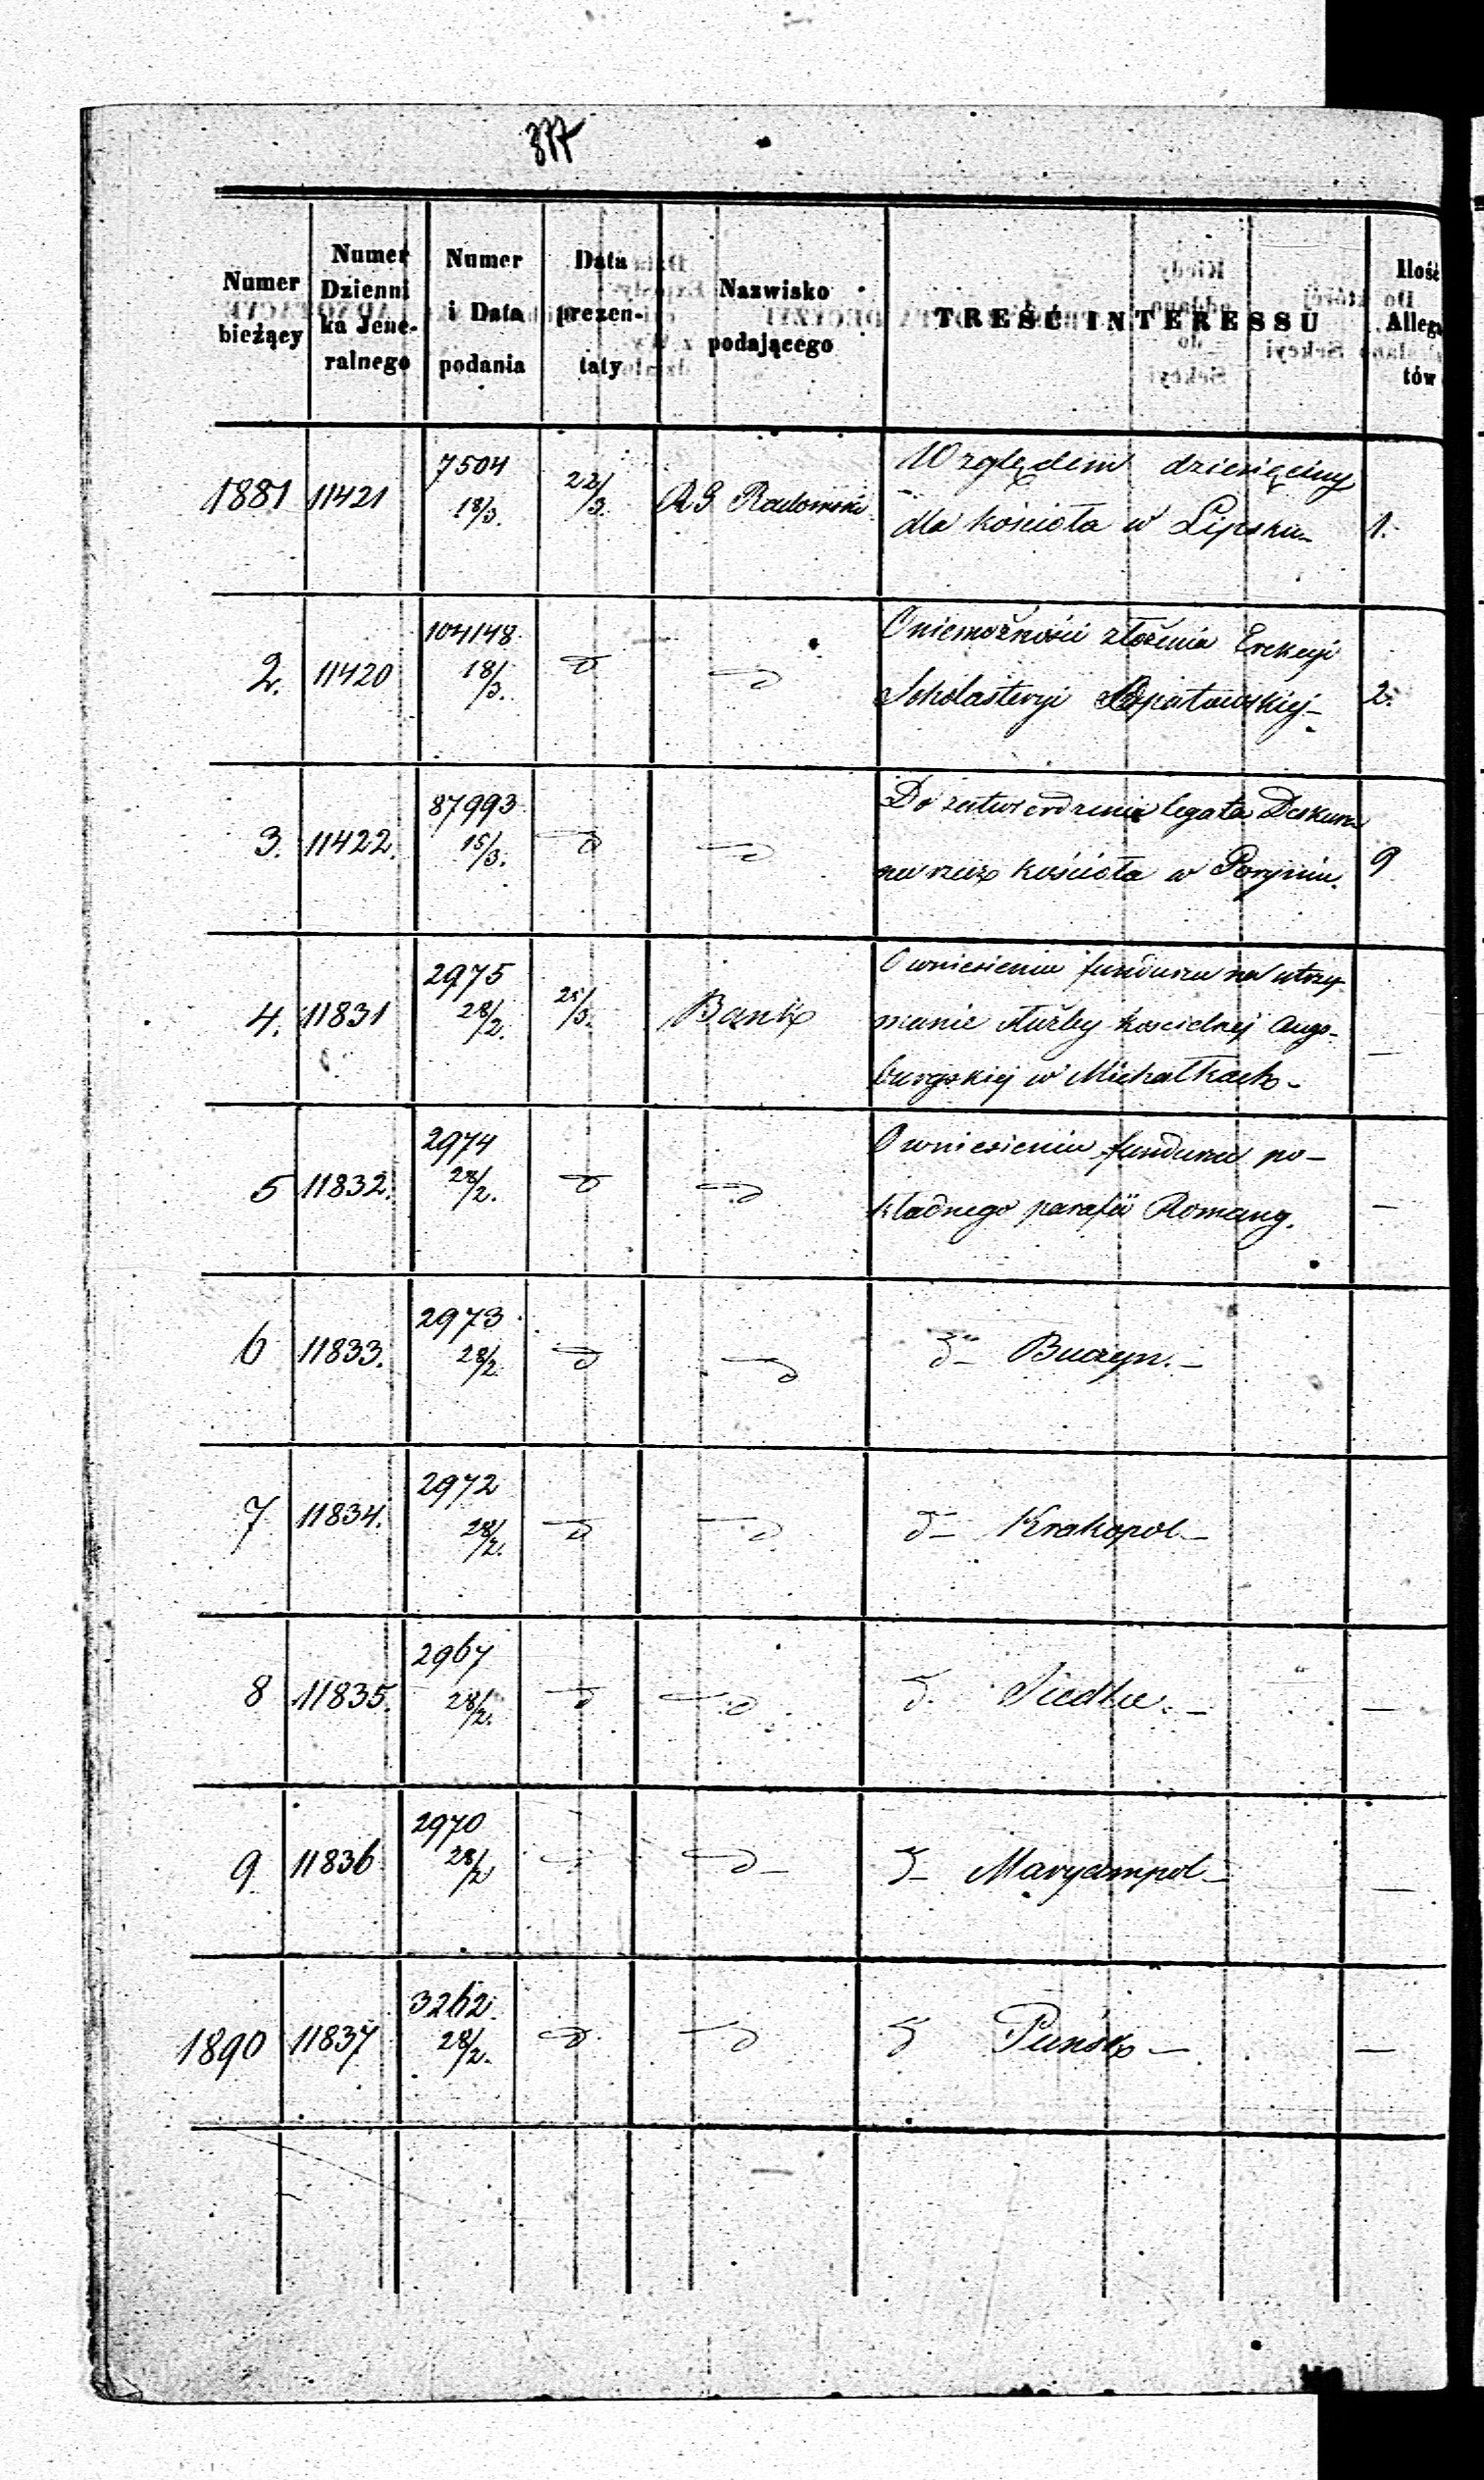 377
Numer bieżący | Numer Dziennika Jeneralnego | Numer i Data podania | Data prezentaty | Nazwisko podającego | TREŚĆ INTERESSU | Ilość Allegatów
1881 | 11421 | 7504 18/3. | 22/3. | RG Radomski | Względem dziesięciny
dla kościoła w Lipsku | 1.
2. | 11420 | 104148. 18/3. | d | d | O niemożności złożenia Erekcyi
Scholasteryi Opatowskiej | 2.
3. | 11422. | 87993 15/3. | d | d | Do zatwierdzenia legata
na rzecz kościoła w | 9
4. | 11831 | 2975 28/2. | 25/3. | Bank | O wniesieniu funduszu na utrzy-
manie służby kościelnej Augs-
burgskiej w Michałkach - | —
5 | 11832. | 2974 28/2. | d | d | O wniesieniu funduszu po-
kładnego parafii | —
6 | 11833. | 2973 28/2. | d | d | d - Buczyn. -
7 | 11834. | 2972 28/2. | d | d | d - Krakopol -
8 | 11835. | 2967 28/2. | d | d | d. Siedlce. - | —
9 | 11836 | 2970 28/2 | d | d - | d - Maryampol - | —
1890 | 11837 | 3262. 28/2. | d | d | d Puńsk - | —